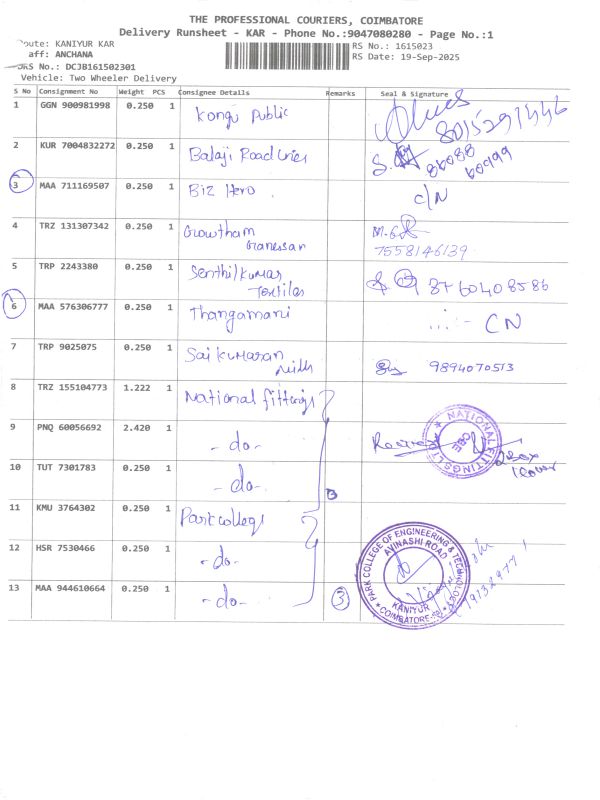 THE PROFESSIONAL COURIERS, COIMBATORE
Delivery Runsheet - KAR - Phone No.:9047080280 - Page No.:1
oute: KANIYUR KAR RS No.: 1615023
aff: ANCHANA RS Date: 19-Sep-2025
DRS No.: DCJB161502301
Vehicle: Two Wheeler Delivery
S No Consignment No Weight PCS Consignee Details Remarks Seal & Signature
1 GGN 900981998 0.250 1 Kongu Public 8015291446
2 KUR 7004832272 0.250 1 Balaji Road Lines S. 86088
60499
3 MAA 711169507 0.250 1 Biz Hero. C/N
4 TRZ 131307342 0.250 1 Gowtham
Ganessan
7558146139
5 TRP 2243380 0.250 1 Senthilkumar
Textiles
8760408586
6 MAA 576306777 0.250 1 Thangamani CN
7 TRP 9025075 0.250 1 Sai Kumaran
Mills
9894070513
8 TRZ 155104773 1.222 1 National fittings
9 PNQ 60056692 2.420 1 - do -
NATIONAL FITTINGS LTD
10 TUT 7301783 0.250 1 - do - 3
1 Cover
11 KMU 3764302 0.250 1 Park college
12 HSR 7530466 0.250 1 - do -
13 MAA 944610664 0.250 1 - do - 3
PARK COLLEGE OF ENGINEERING & TECHNOLOGY
AVINASHI ROAD
KANIYUR
COIMBATORE